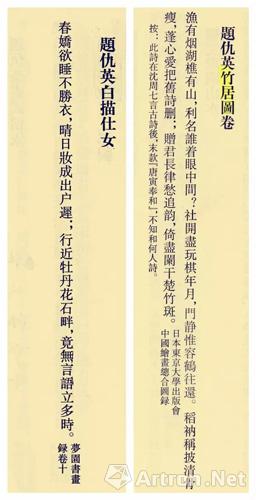 題仇英竹居圖卷
漁有烟湖樵有山，利名誰着眼中間？社開盡玩棋年月，門静惟容鶴往還。稻衲稱披清骨
瘦，蓬心愛把舊詩删；贈君長律愁追韵，倚盡闌干楚竹斑。日本東京大學出版會
中國繪畫總合圖録
按：此詩在沈周七言古詩後，末款「唐寅奉和」，不知和何人詩。
題仇英白描仕女
春嬌欲睡不勝衣，晴日妝成出户遲；行近牡丹花石畔，竟無言語立多時。夢園書畫
録卷十
Artron.Net